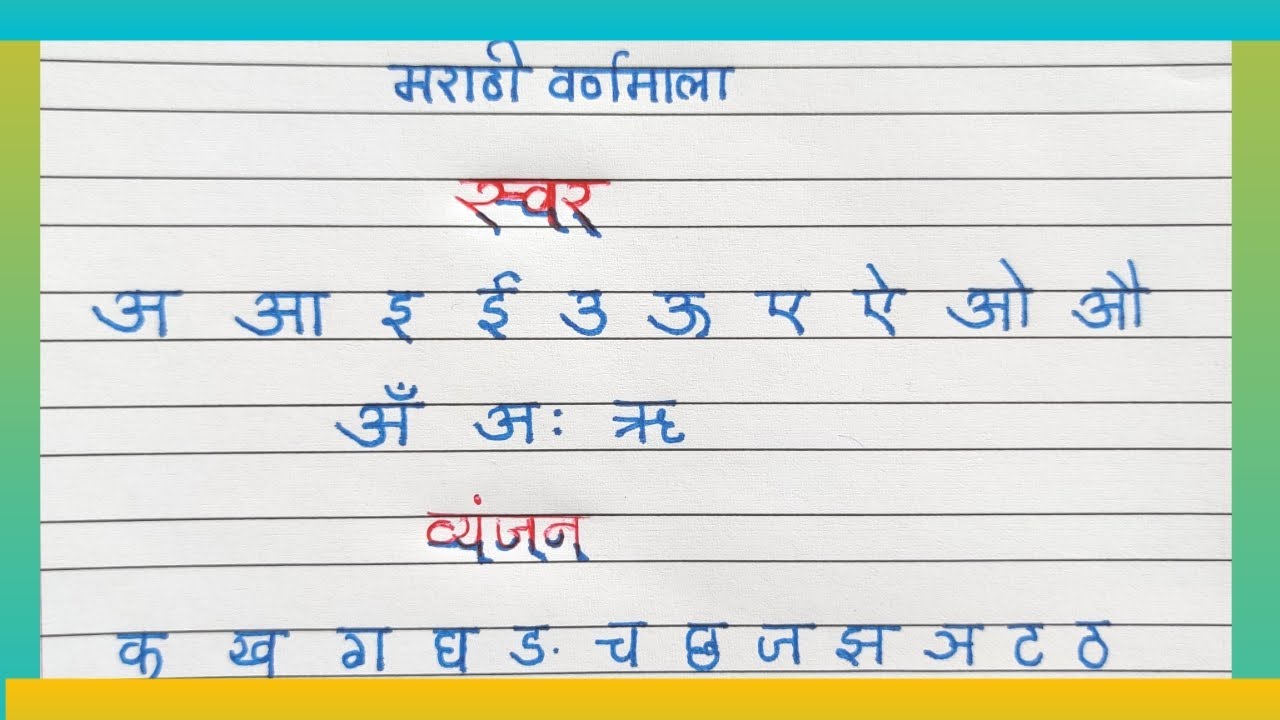 मराठी वर्णमाला
स्वर
अ आ इ ई उ ऊ ए ऐ ओ औ
अँ अः ऋ
व्यंजन
क ख ग घ ङ च छ ज झ ञ ट ठ